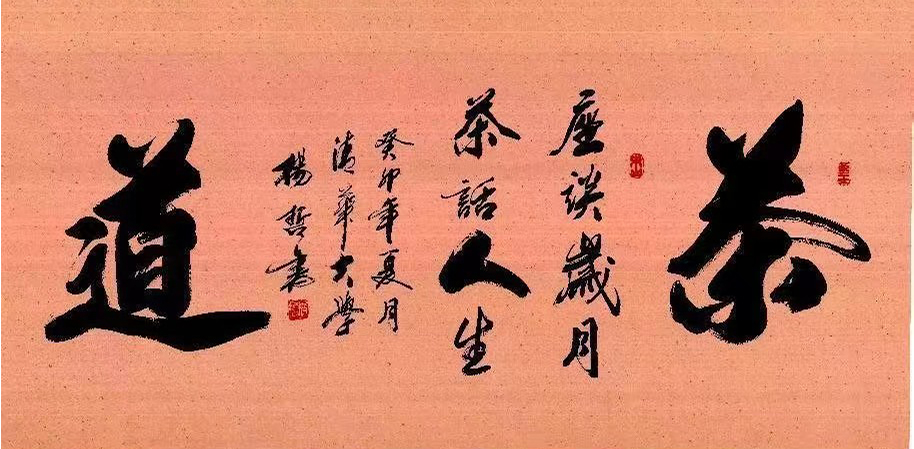 茶
座談歲月
茶話人生
癸卯年夏月
清華大學
楊哲書
道